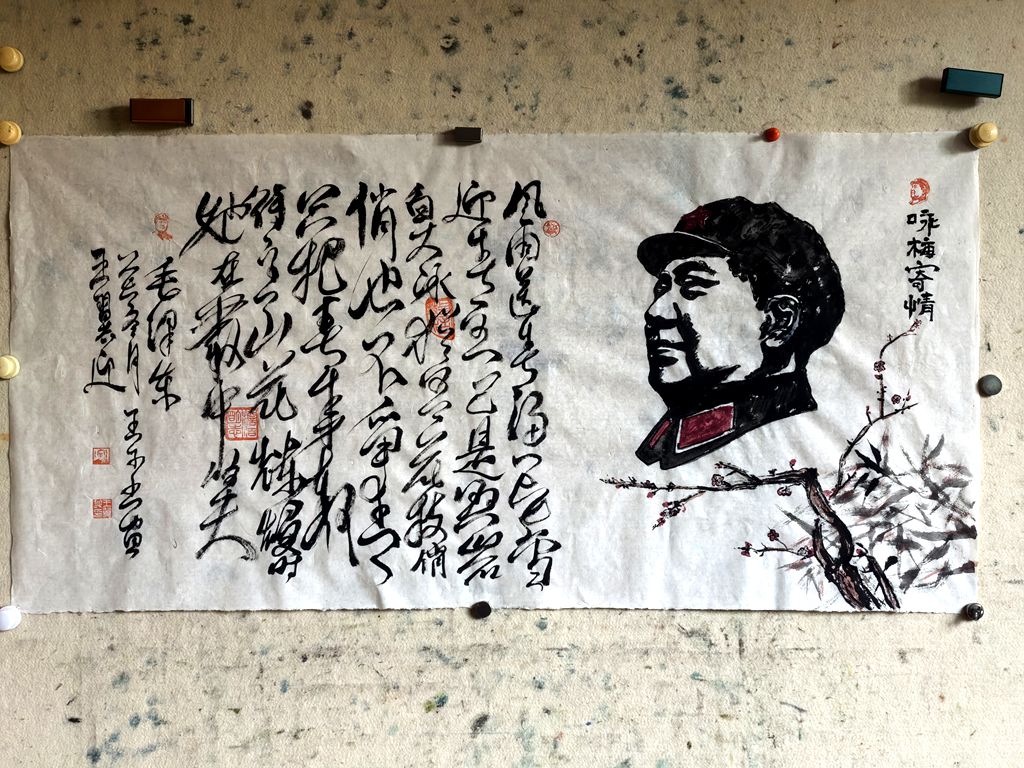 咏梅寄情
风雨送春归飞雪
迎春到已是悬岩
百丈冰犹有花枝俏
俏也不争春
只把春来报
待到山花烂熳时
她在叢中笑
毛泽东